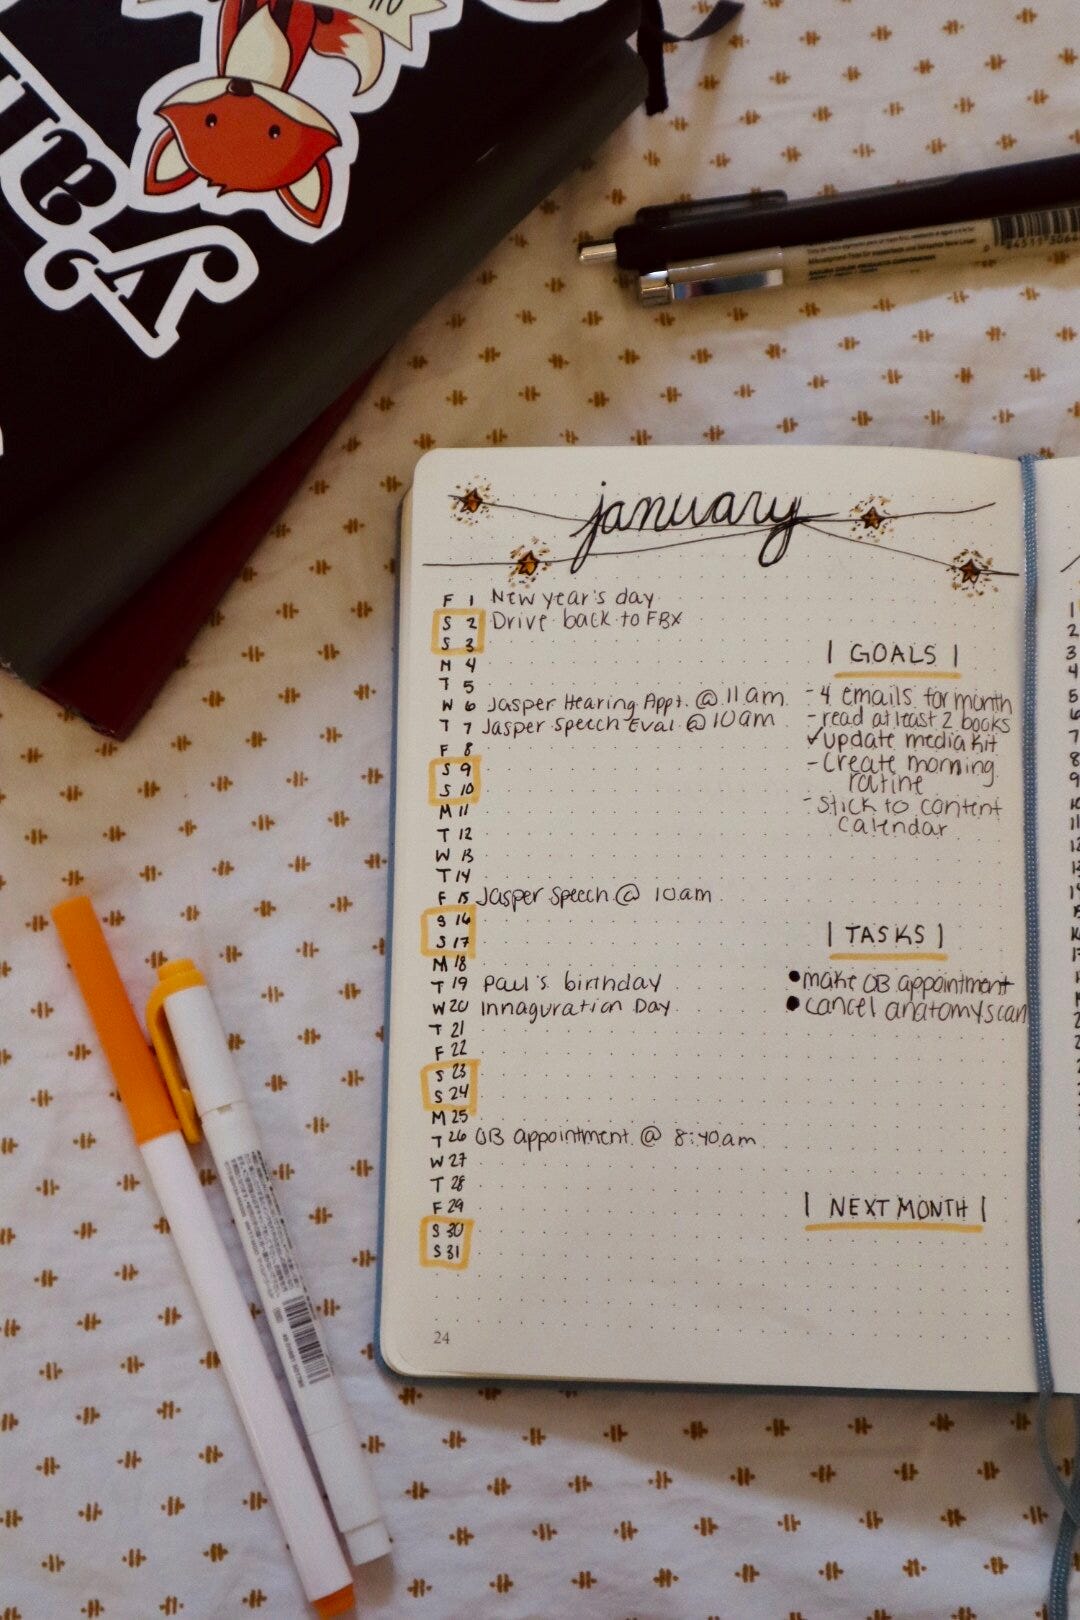 january
F 1 New year's day
S 2 Drive back to FBX
S 3
M 4
T 5
W 6 Jasper Hearing Appt. @ 11 am
T 7 Jasper Speech Eval @ 10am
F 8
S 9
S 10
M 11
T 12
W 13
T 14
F 15 Jasper Speech @ 10am
S 16
S 17
M 18
T 19 Paul's birthday
W 20 Innaguration Day
T 21
F 22
S 23
S 24
M 25
T 26 OB appointment @ 8:40am
W 27
T 28
F 29
S 30
S 31
24
| GOALS |
- 4 emails for month
- read at least 2 books
✓ update media kit
- create morning
ratine
- stick to content
calendar
| TASKS |
● make OB appointment
● cancel anatomy scan
| NEXT MONTH |
1
2
3
4
5
6
7
8
9
10
11
12
13